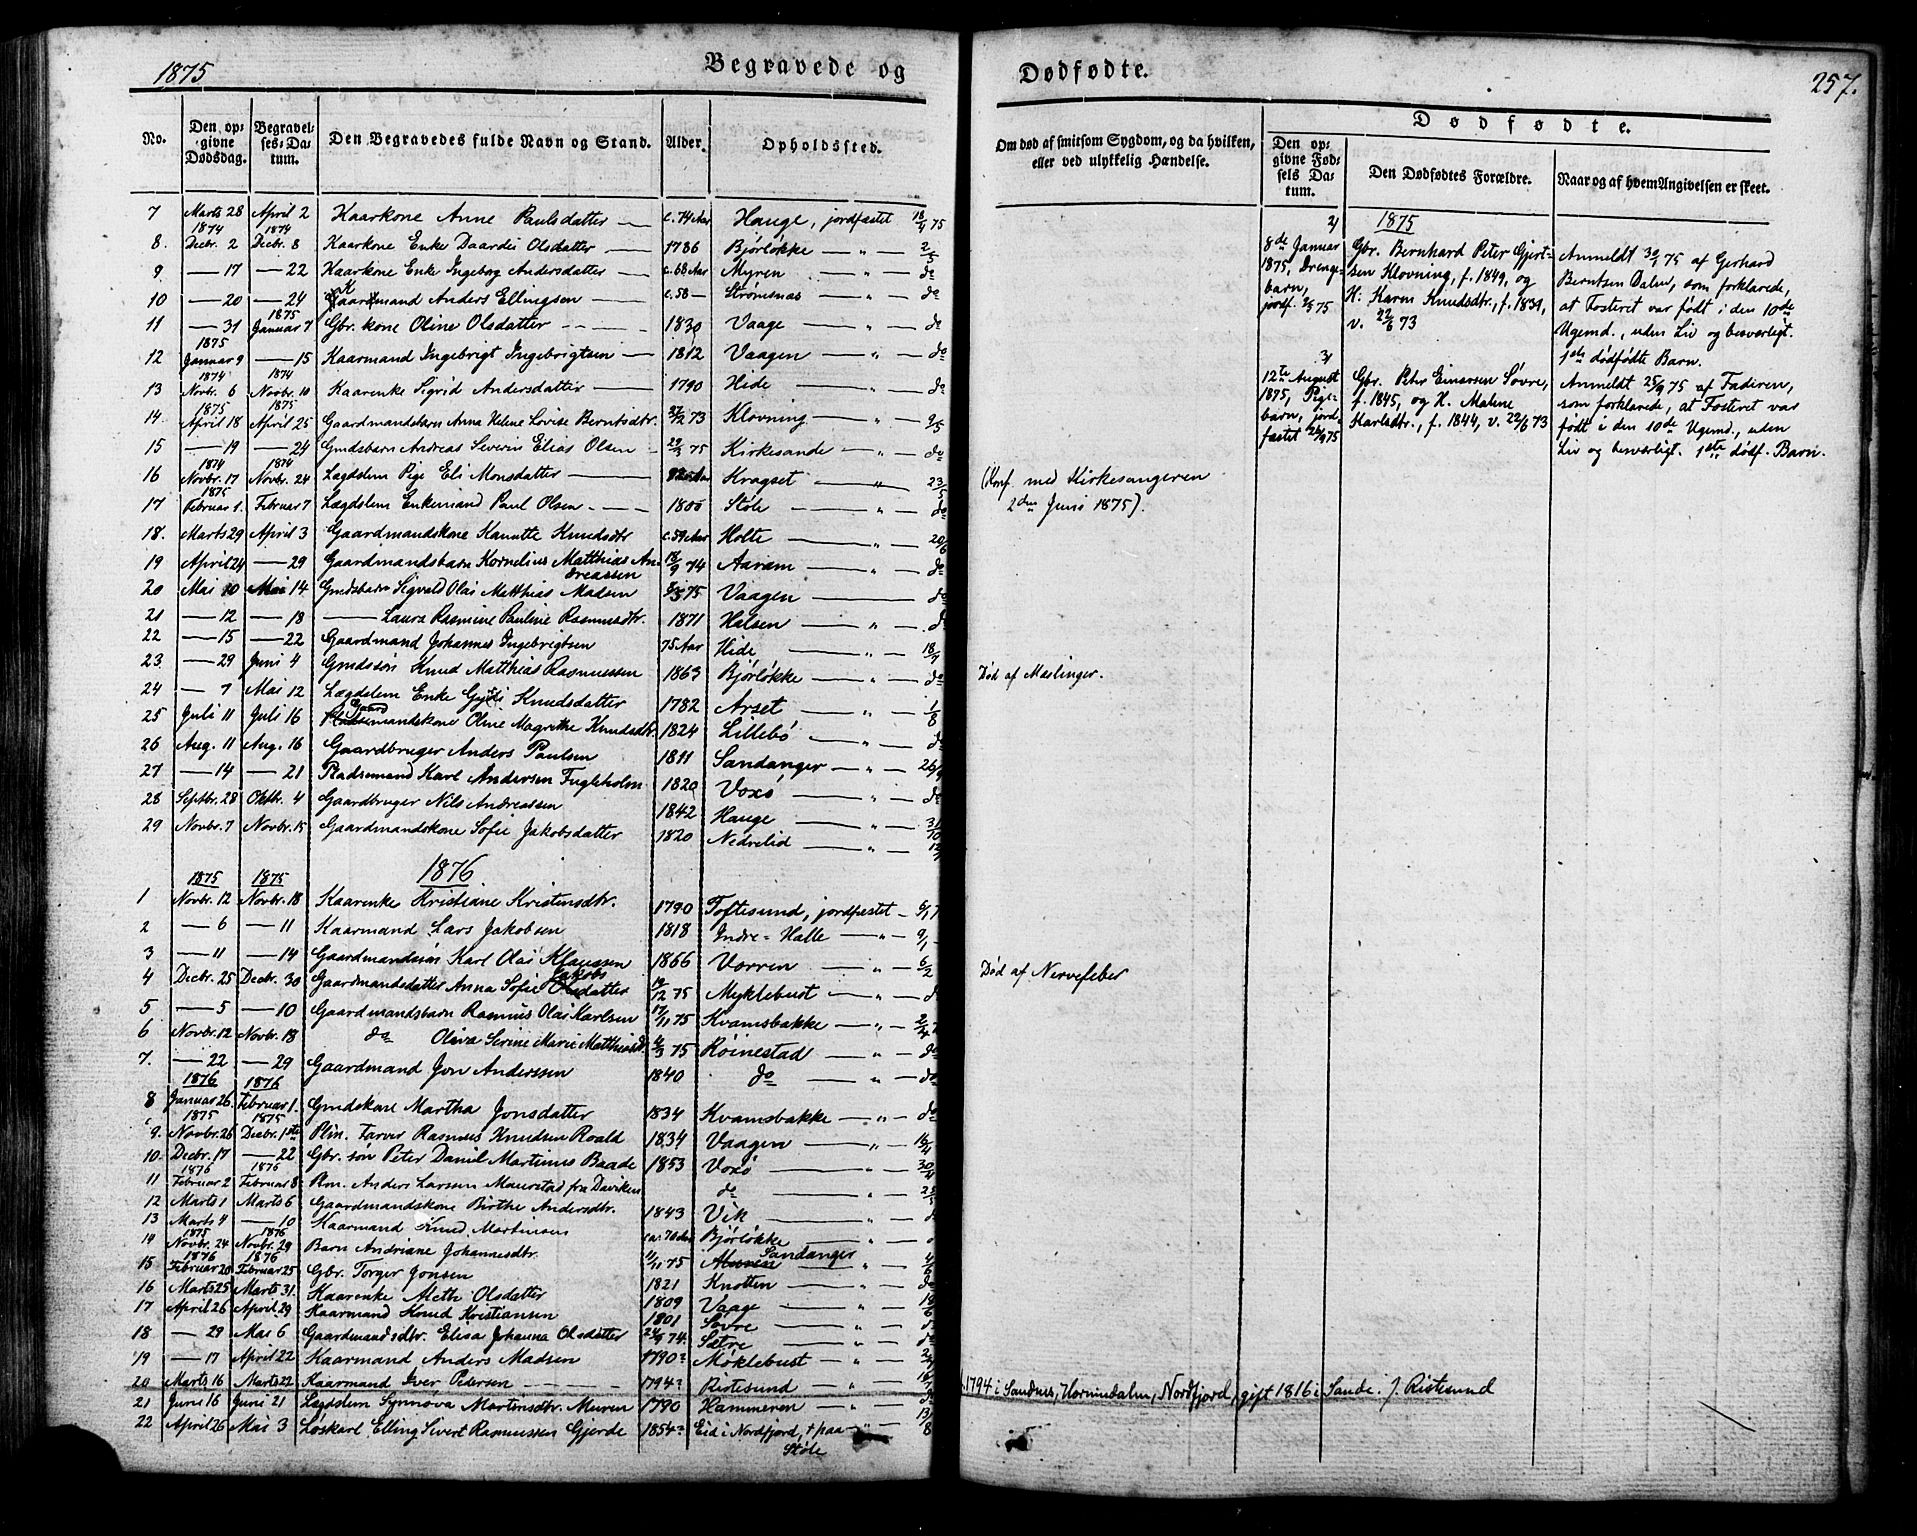 1875
Begravede og
No.
Den opgivne Dødsdag.
Begravelses-Datum.
Den Begravedes fulde Navn og Stand.
Alder.
Opholdssted.
7 Marts 28 April 2 Kaarkone Anne Paulsdatter c. 74 Aar Hauge, jordfæstet 18/4 75
1874 1874
8. Decbr. 2 Decbr. 8 Kaarkone Enke Olsdatter 1786 Bjørløkke — " — 2/5
9 — 17 — 22 Kaarkone Enke Ingebog Andersdatter c. 68 Aar Myren — " — do
10 — 20 — 24 Kaarmand Anders Ellingsen c. 58 — Strømsnæs — " — do
1875
11 — 31 Januar 7 Gbr. kone Oline Olsdatter 1830 Vaage — " — do
1875
12 Januar 9 — 15 Kaarmand Ingebrigt Ingebrigtsen 1812 Vaagen — " — do
1874 1874
13 Novbr. 6 Novbr. 10 Kaarenke Sigrid Andersdatter 1790 Hide — " — do
1875 1875
14. April 18 April 25 Gaardmandsbarn Anna Helene Lovise Berntsdtr. 73 Klovning — " — 9/5
15 — 19 — 24 Gmdsbarn Andreas Severin Elias Olsen 75 Kirkesande — " — do
1874 1874
16 Novbr. 17 Novbr. 24 Lægdslem Pige Eli Monsdatter Kragset — " — 23/5
1875
17 Februar 1. Februar 7 Lægdslem Enkemand Paul Olsen 1800 Støle — " — do
18. Marts 29 April 3 Gaardmandskone Knudsdtr c. 59 Aar Holte — " — 20/6
19 April 24 — 29 Gaardmandsbarn Kornelius Matthias Andreassen 18/9 74 Aaram — " — do
20 Mai 10 Mai 14 Gmdsbarn Sigvald Olai Matthias Madsen 75 Vaagen — " — do
21 — 12 — 18 — Laura Rasmine Pauline Rasmusdtr. 1871 Halsen — " — do
22 — 15 — 22 Gaardmand Johannes Ingebrigtsen 75 Aar Hide — " — 18/7
23. — 29 Juni 4 Gmdssøn Knud Matthias Rasmussen 1863 Bjørløkke — " — do
24 — 7 Mai 12 Lægdslem Enke Knudsdatter 1782 Arset — " — 1/8
25 Juli 11 Juli 16 Gaardmandskone Oline Magrethe Knudsdtr. 1824 Lillebø — " — do
26 Aug. 11 Aug. 16 Gaardbruger Anders Paulsen 1811 Sandanger — " — 26/9
27 — 14 — 21 Pladsemand Karl Andersen Fugleholm 1820 Voxø — " — do
28 Septbr. 28 Oktbr. 4 Gaardbruger Nils Andreassen 1842 Hauge — " — 31/10
29 Novbr. 7 Novbr. 15 Gaardmandskone Sofie Jakobsdatter 1820 Nedrelid — " —
1876
1875 1875
1 Novbr. 12 Novbr. 18 Kaarenke Kristiane Kristensdtr. 1790 Toftesund, jordfæstet — 6/1
2 — 6 — 11 Kaarmand Lars Jakobsen 1818 Indre-Halle — " — 9/1
3 — 11 — 14 Gaardmandssøn Karl Olai Klaussen 1866 Vorren — " — 6/2
4 Decbr. 25 Decbr. 30 Gaardmandsdatter Anna Sofie Jakobsdatter 12 75 Myklebust — " — do
5 — 5 — 10 Gaardmandsbarn Rasmus Olai Karlsen 17/11 75 Kvamsbakke — " — 2/4
6 Novbr. 12 Novbr. 18 do Oliva Serine Marie Matthiasd. 75 Røinestad — " — do
7. — 22 — 29 Gaardmand Jon Anderssen 1840 do — " — do
1876 1876
8 Januar 26. Februar 1. Gmdskone Martha Jonsdatter 1834 Kvamsbakke — " — do
1875 1875
9. Novbr. 26 Decbr. 1ste Plm. Farver Rasmus Knudsen Roald 1834 Vaagen — " — 16/4
10. Decbr. 17 — 22 Gbr. søn Peter Danil Martinus Baade 1853 Voxø — " — 30/4
1876 1876
11 Februar 2 Februar 8 Pm. Anders Larsen Maurstad fra Daviken do — " — 25/5
12 Marts 1 Marts 6 Gaardmandskone Birthe Andersdtr. 1843 Vik
13 Marts 4 — 10 Kaarmand Knud Martinsen ca. 70 Aar Bjørløkke
1875 1876
14 Novbr. 24 Novbr. 29 Barn Andriane Johannesdtr. 11 75 Sandanger — " — 4/6
1876 1876
15 Februar 20 Februar 25 Gbr. Torger Jonsen 1821 Knotten — " — do
16 Marts 25 Marts 31. Kaarenke Aleth Olsdatter 1809 Vaage — " — 18/6
17 April 26 April 29 Kaarmand Knud Kristiansen 1801 Søvre — " — do
18 — 29 Mai 6 Gaardmandsdtr. Elisa Johanna Olsdatter 74. Sætre — " — do
19 — 17 April 22 Kaarmand Anders Madsen 1790 Møklebust — " —
20 Marts 16 Marts 22 Kaarmand Iver Pedersen 1794 Ristesund — " —
21 Juni 16 Juni 21 Lægdslem Synnøva Martinsdtr. Muren 1790 Hammeren — " — do
22 April 26 Mai 3 Løskarl Elling Sivert Rasmussen Gjerde 1854 Eid i Nordfjord, + paa Støle 13/8
Dødfødte.
257.
Om død af smitsom Sygdom, og da hvilken, eller ved ulykkelig Hændelse.
Dødfødte.
Den opgivne Fødsels Datum.
Den Dødfødtes Forældre.
Naar og af hvem Angivelsen er skeet.
1875
2)
8de Januar 1875, Drengebarn, jordf. 2/5 75
Gbr. Bernhard Peter Gjertsen Klovning, f. 1849, og H. Karen Knudsdtr., f. 1839, v. 22/6 73
Anmeldt 30/1 75 af Gerhard Berntsen Dalen, som forklarede, at Fosteret var født i den 10de Ugemd., uden Liv og besværligt. 1ste dødfødte Barn.
3)
12te August 1875, Pigebarn, jordfæstet 26/9 75
Gbr. Peter Einarsen Søvre, f. 1845, og H. Malene Karlsdtr., f. 1844, v. 22/6 73
Anmeldt 25/9 75 af Faderen, som forklarede, at Fosteret var født i den 10de Ugemd., uden Liv og besværligt. 1ste dødf. Barn.
(Konf. med Kirkesangeren
2den Juni 1875).
Død af Mæslinger.
Død af Nervefeber
1794 i Sandnes, Hornindalen, Nordfjord, gift 1816 i Sande. J. Ristesund